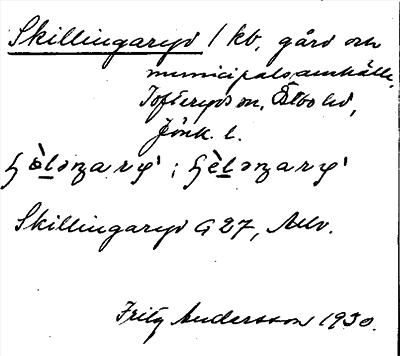 Skillingaryd 1 kb, gård och
municipalsamhälle,
Tofteryds sn, Östbo hd,
Jönk. l.
Skillingaryd G 27, Allv.
Fritz Andersson 1930.